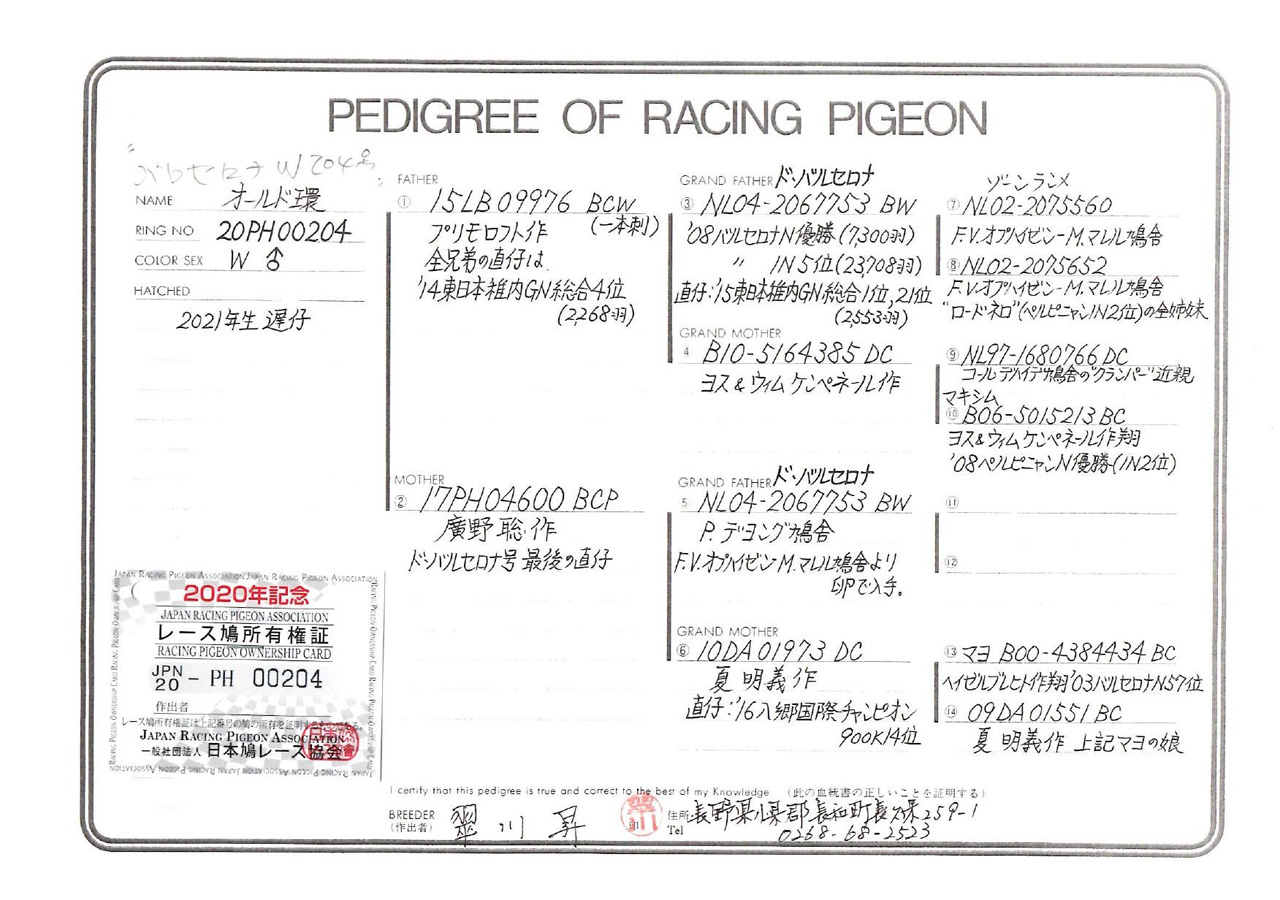 PEDIGREE OF RACING PIGEON
"バルセロナW204号"
NAME オールド環
RING NO 20PH00204
COLOR SEX W ♂
HATCHED
2021年生 遅仔
FATHER
① 15LB09976 BCW
(一本刺)
プリモロフト作
全兄弟の直仔は
'14東日本稚内GN総合4位
(2,268羽)
MOTHER
② 17PH04600 BCP
廣野聡作
ド・バルセロナ号 最後の直仔
GRAND FATHER ド・バルセロナ
③ NL04-2067753 BW
'08バルセロナN優勝(7,300羽)
〃 IN5位(23,708羽)
直仔:'15東日本稚内GN総合1位,21位
(2,553羽)
GRAND MOTHER
4 B10-5164385 DC
ヨス&ウィムケンペネール作
GRAND FATHER ド・バルセロナ
5 NL04-2067753 BW
P.デヨング鳩舎
F.V.オプハイゼン-M.マレル鳩舎より
卵で入手。
GRAND MOTHER
⑥ 10DA01973 DC
夏 明義作
直仔:'16八郷国際チャンピオン
900K14位
ゾーンランメ
⑦ NL02-2075560
F.V.オプハイゼン-M.マレル鳩舎
⑧ NL02-2075652
F.V.オプハイゼン-M.マレル鳩舎
"ロードネロ"(ペルピニャンIN2位)の全姉妹
⑨ NL97-1680766 DC
コールデハイデ鳩舎の"クランパー"近親
マキシム
⑩ B06-5015213 BC
ヨス&ウィムケンペネール作翔
'08ペルピニャンN優勝(IN2位)
⑪
⑫
⑬ マヨ B00-4384434 BC
ヘイゼルブレヒト作翔'03バルセロナN57位
⑭ 09DA01551 BC
夏 明義作 上記マヨの娘
JAPAN RACING PIGEON ASSOCIATION JAPAN RACING PIGEON ASSOCIATION
2020年記念
JAPAN RACING PIGEON ASSOCIATION
レース鳩所有権証
RACING PIGEON OWNERSHIP CARD
JPN
20 - PH 00204
作出者
レース鳩所有権証は上記番号の鳩の所有を証明するものである。
JAPAN RACING PIGEON ASSOCIATION
一般社団法人 日本鳩レース協会
I certify that this pedigree is true and correct to the best of my Knowledge (此の血統書の正しいことを証明する)
BREEDER
(作出者) 翠川 昇 印
住所 長野県小県郡長和町長久保259-1
Tel 0268-68-2523